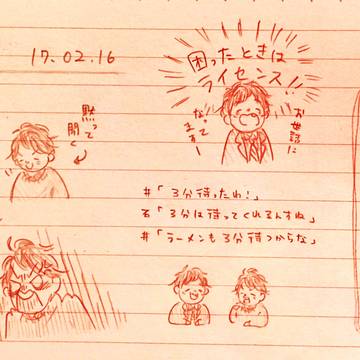 17.02.16
困ったときは
ライセンス!!
お世話に
なってま
す〜
黙って
聞く
#「3分待ったわ！」
る「3分は待ってくれるんすね」
#「ラーメンも3分待つからな」